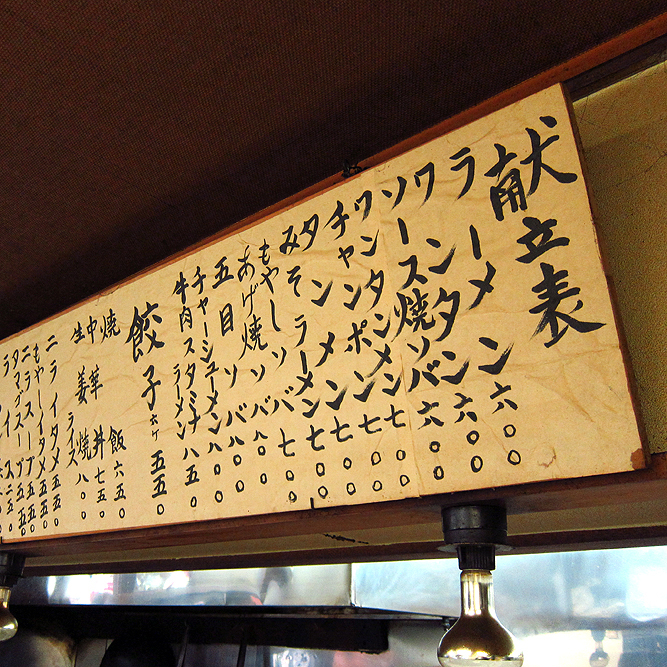 献立表
ラーメン 六〇〇
ワンタン 六〇〇
ソース焼ソバ 六〇〇
ワンタンメン 七〇〇
チャンポン 七〇〇
タンメン 七〇〇
みそラーメン 七〇〇
もやしソバ 七〇〇
あげ焼ソバ 八〇〇
五目ソバ 八〇〇
チャーシューメン 八〇〇
牛肉スタミナラーメン 八五〇
餃子 六ケ 五五〇
焼飯 六五〇
中華丼 七五〇
生姜焼ライス 八〇〇
ニライタメ 五五〇
もやしイタメ 五五〇
ニラスープ 五五〇
タマゴスープ 五五〇
ライス 二五〇